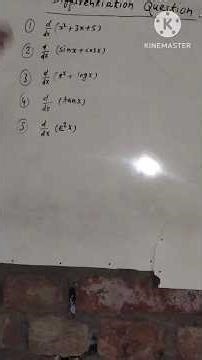 Differentiation Question
KINEMASTER
① d/dx (x² + 3x + 5)
② d/dx (sinx + cosx)
③ d/dx (eˣ + logx)
④ d/dx (tanx)
5 d/dx (e²x)